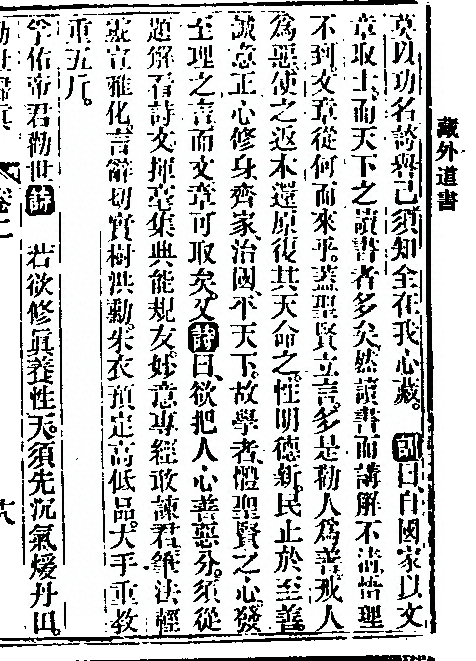 藏外道書
莫以功名誇譽己須知全在我心藏。訓曰、自國家以文
章取士、而天下之讀書者多矣、然讀書而講解不清、悟理
不到、文章從何而來乎。蓋聖賢立言、多是勸人為善、戒人
為惡、使之返本還原、復其天命之性、明德新民、止於至善。
誠意正心、修身齊家、治國平天下。故學者、體聖賢之心、發
至理之言、而文章可取矣。又詩曰、欲把人心善惡分。須從
題解看詩文。揮毫集典能規友。妙意專經敢諫君。筆法輕
靈宣雅化。言辭切實樹洪勳。朱衣預定高低品。大手重教
重五斤。
孚佑帝君勸世詩 若欲修真養性天。須先沉氣煖丹田。
勸世歸真 卷二 十八